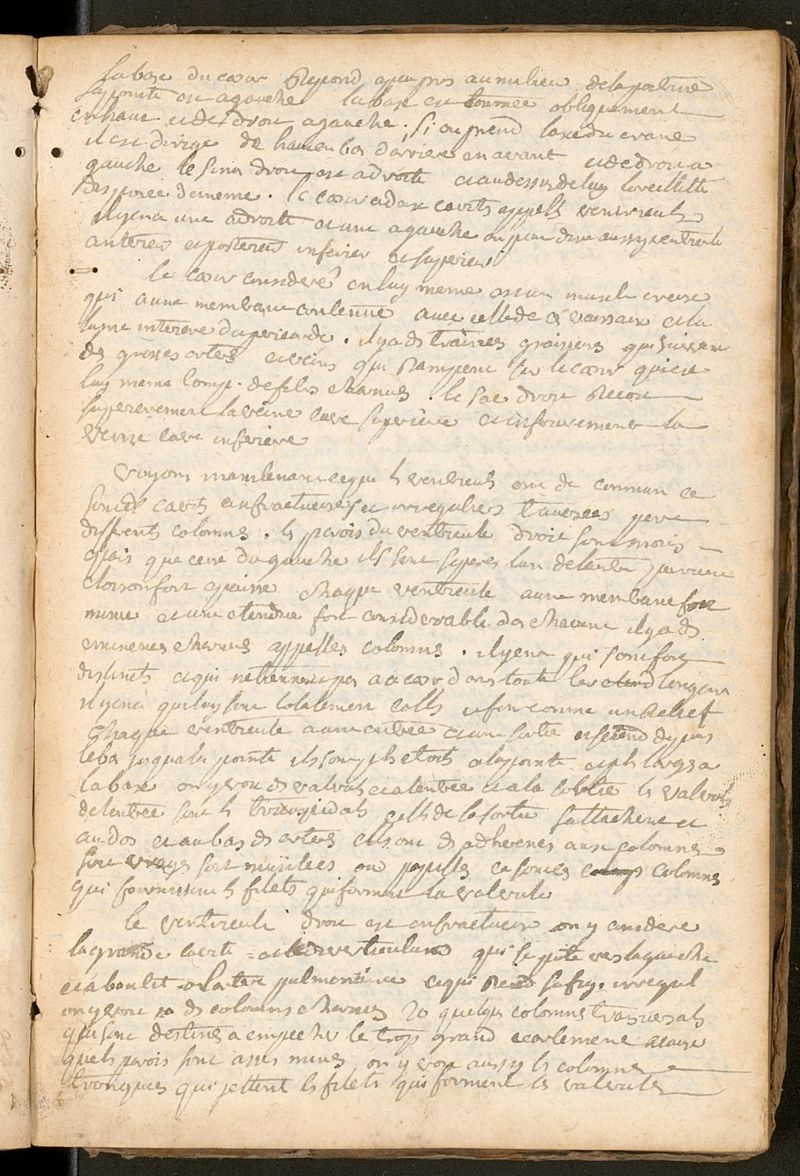 la base du coeur Repond apeu pres au milieu de la poitrine
sa pointe est a gauche la base est tournée obliquement
en haut et de droit a gauche, si on prend l'axe du crane
il est dirigé de haut en bas d'arriere en avant et de droit a
gauche le sinus droit est a droite et au dessus de luy l'oreillette
disposée de meme. le coeur a deux cavités appellés ventricules
il y en a une a droite et une a gauche on peut dire aussy ventricule
anterieur et posterieur inferieur et superieur
le coeur consideré en luy meme est un muscle creux
qui a une membrane contenue avec celle de ses vaisseaux et la
lame interieure du pericarde. il y a des trainées graisseuses qui suivent
des grosses arteres et veines qui Rampent sur le coeur qui est
luy meme comp. de fibres charnues. le sac droit Recoit
superieurement la veine cave superieure et inferieurement la
veine cave inferieure
voyons maintenant ce que les ventricules ont de commun ce
sont des cavités anfractueuses et irregulieres traversées par
differents colonnes. les parois du ventricule droit sont moins
epais que ceux du gauche ils sont separés l'un de l'autre par une
cloison fort epaisse chaque ventricule a une membrane fort
mince et une etendue fort considerable de chairs il y a des
eminences charnues appellés colonnes. il y en a qui sont fort
distincts et qui ne tiennent pas au coeur dans toute leur longueur
il y en a qui luy sont totalement collés et font comme un Relief
Chaque ventricule a une entrée et une sortie et s'etend depuis
la base jusqu'a la pointe ils sont plus etroits a la pointe et plus larges a
la base on y voit des valvules et a l'entrée et a la sortie les valvules
de l'entrée sont les tricuspidales celles de la sortie s'attachent et
au dos et au bas des arteres elles ont des adherences aux colonnes
soit vrayes soit ou ce sont ces colonnes
qui fournissent les filets qui forment la valvule
le ventricule droit est anfractueux on y considere
la grande cavité qui se jette vers la gauche
et aboutit a l'artere pulmonaire et qui Rend irregul
on y voit 1o des colonnes charnues 2o quelques colonnes transversales
qui sont destinés a empecher le trop grand ecartement a cause
que les parois sont assez minces on y voit aussy les colonnes
troniques qui jettent les filets qui forment les valvules